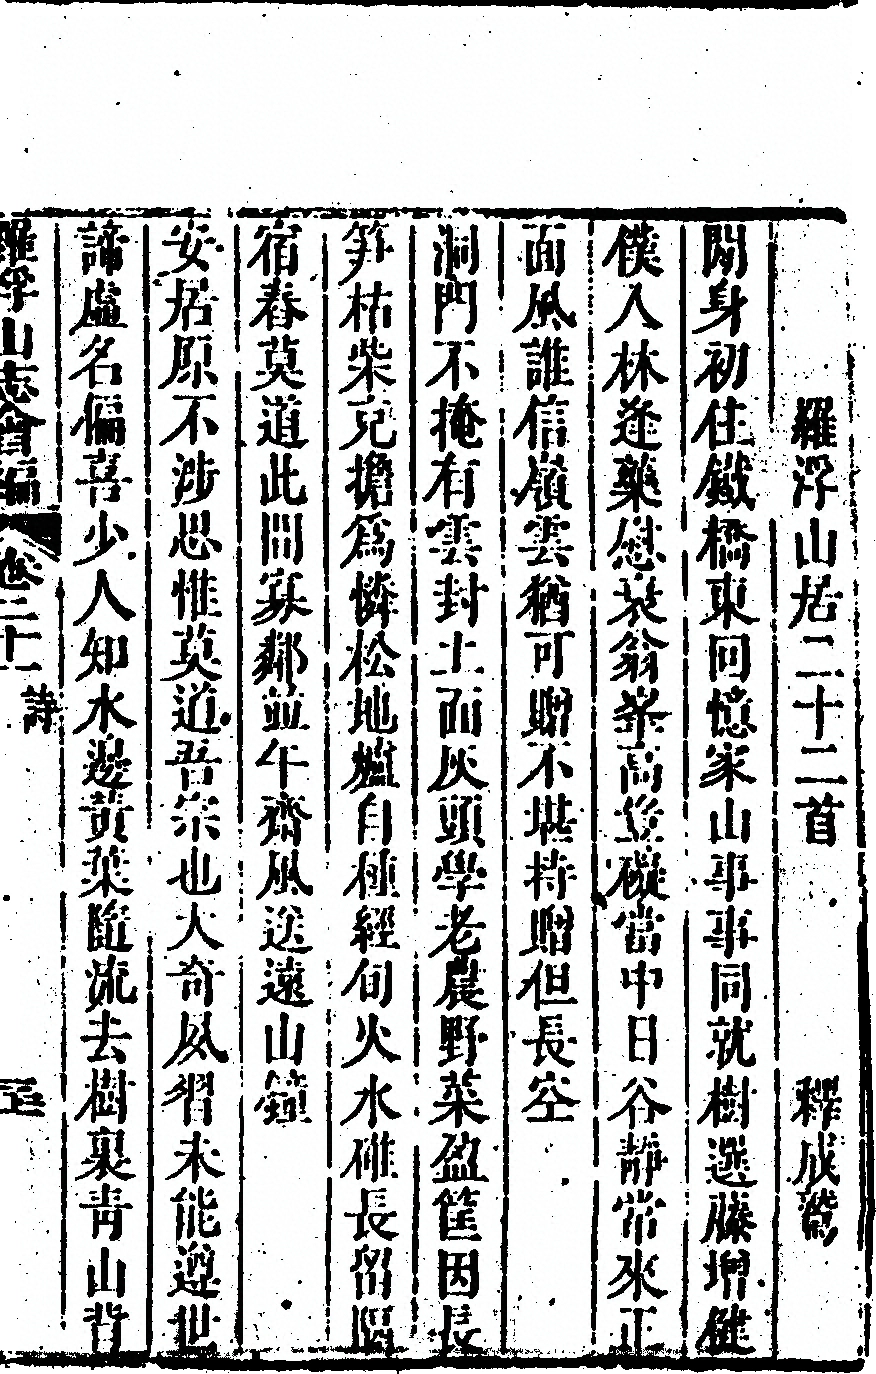 羅浮山居二十二首　釋成鷲
閒身初住鐵橋東回憶家山事事同就樹選藤增健
僕入林逢藥慰衰翁峯高並礙當中日谷靜常來正
面風誰信嶺雲猶可贈不堪持贈但長空
洞門不掩有雲封土面灰頭學老農野菜盈筐因長
筍枯柴克擔爲憐松地爐自種經旬火水碓長留隔
宿舂莫道此間寡鄰並午齋風送遠山鐘
安居原不涉思惟莫道吾宗也大奇夙習未能遵世
諦虛名偏喜少人知水邊黃葉隨流去樹裏靑山背
羅浮山志會編　卷二十一　詩